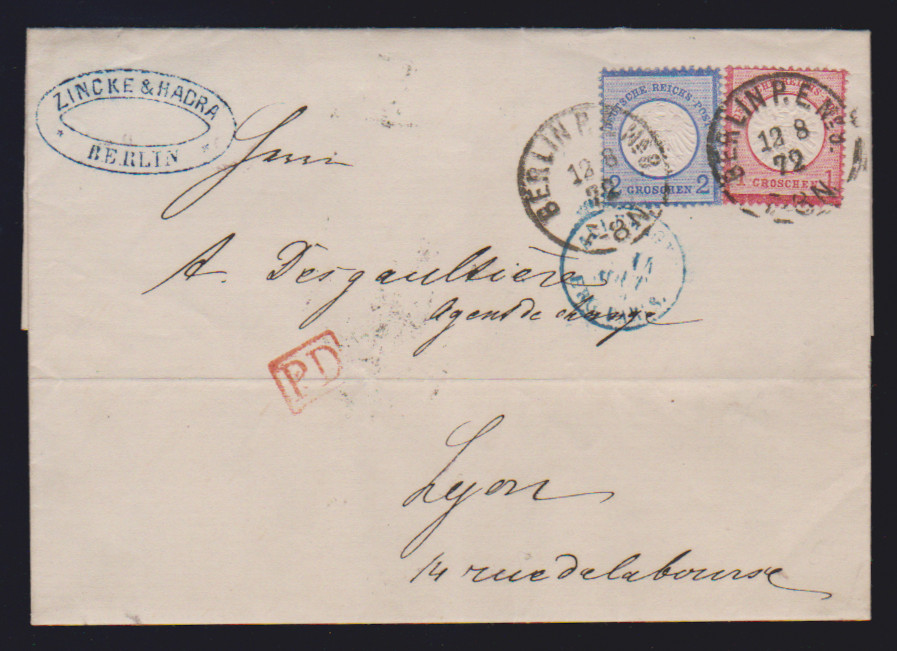 ZINCKE & HADRA
BERLIN
DEUTSCHE REICHS-POST
2 GROSCHEN 2
1 GROSCHEN 1
BERLIN P.
12 8
72
8N
BERLIN P. E. No 8
12 8
72
8N
Herrn
A. Desgaultière
Agent de change
PD
Lyon
14 rue de la bourse